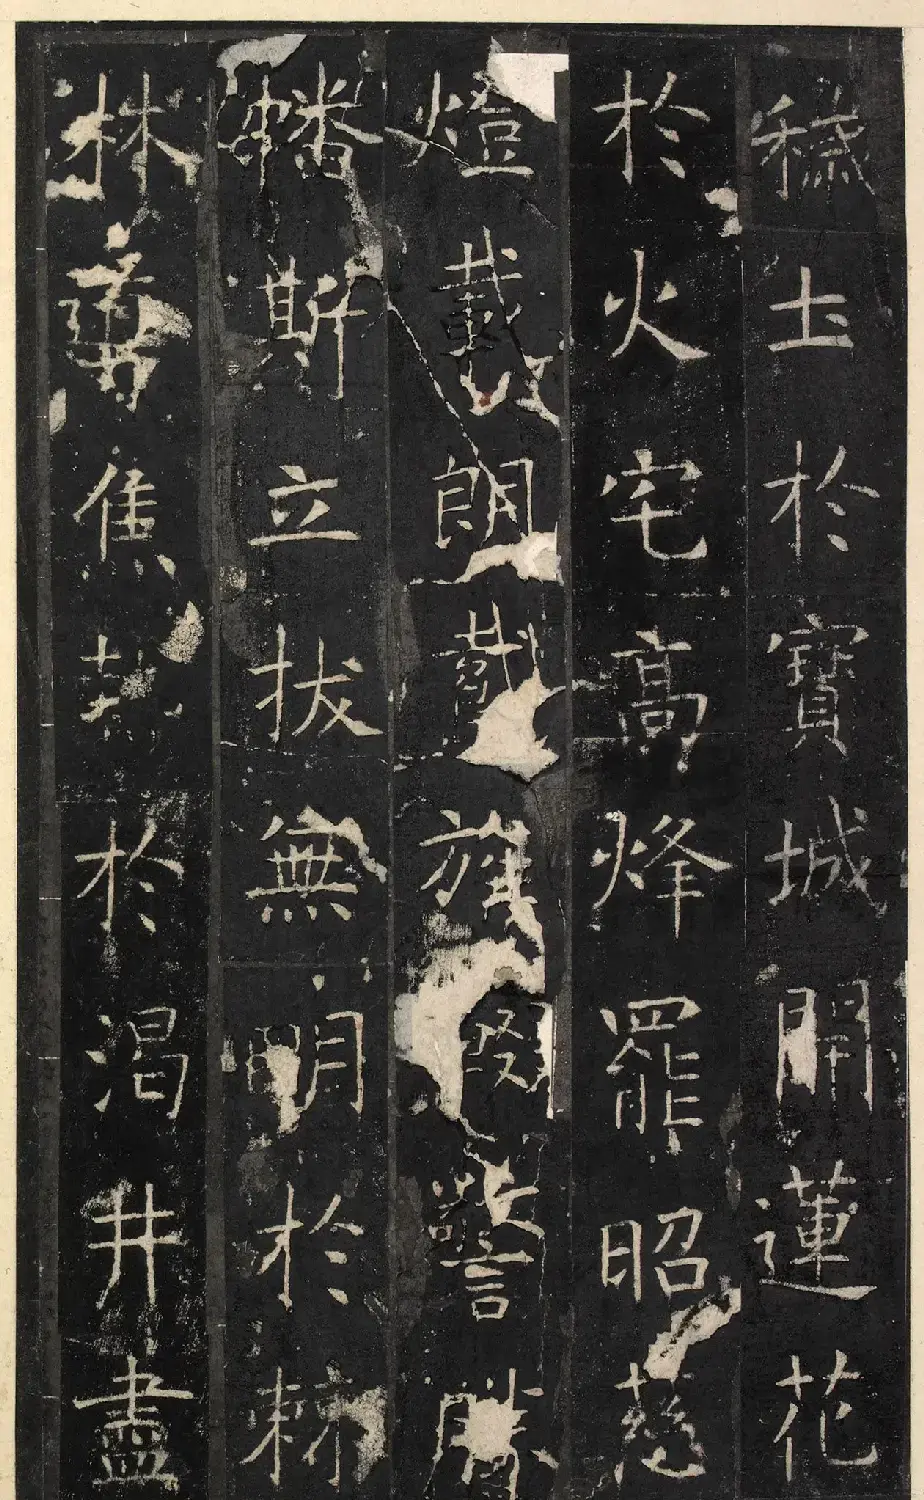 穢土於寶城開蓮花
於火宅高烽罷昭慈
燈載朗旌警勝
幡斯立拔無明於棘
林焦熱於渴井盡